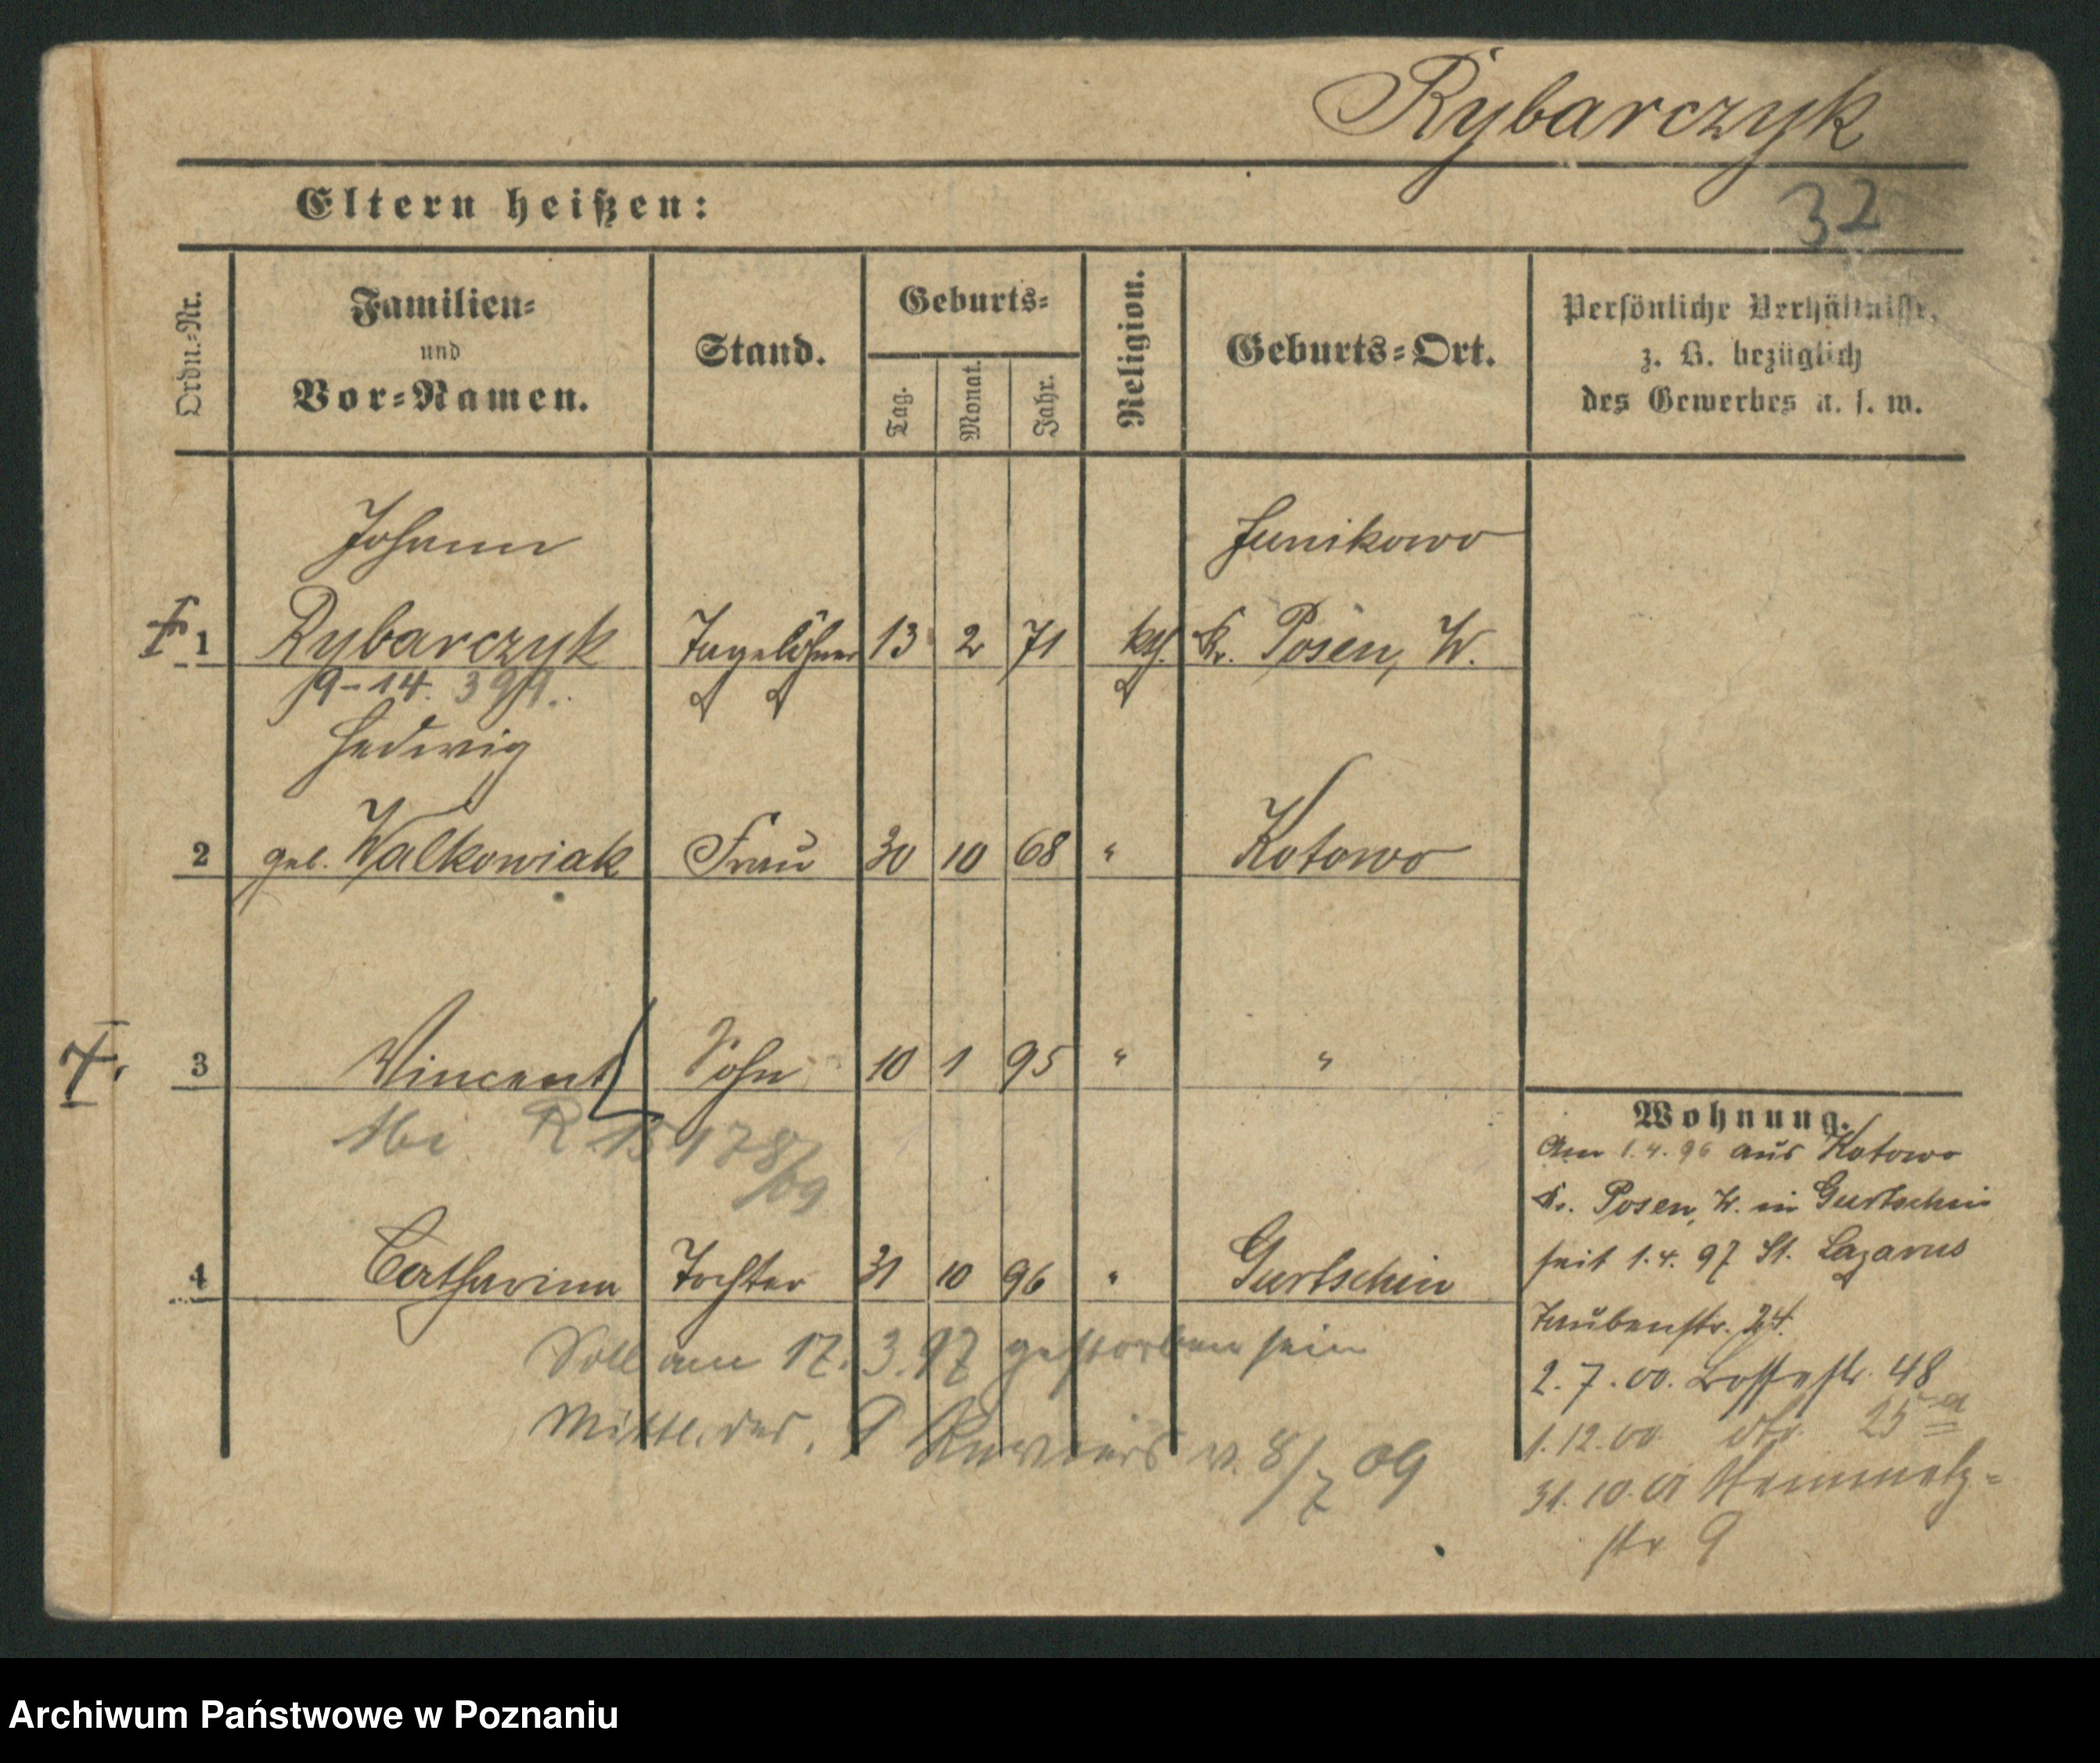 Rybarczyk
32
Eltern heißen:
Ordn.-Nr.
Familien-
und
Vor-Namen.
Stand.
Geburts-
Tag.
Monat.
Jahr.
Religion.
Geburts-Ort.
Persönliche Verhältnisse,
z. B. bezüglich
des Gewerbes u. s. w.
Johann Junikowo
1 Rybarczyk Tagelöhner 13 2 71 kth. Kr. Posen, W.
Hedwig
2 geb. Walkowiak Frau 30 10 68 " Kotowo
3 Vincent Sohn 10 1 95 " "
4 Catharina Tochter 31 10 96 " Gurtschin
Soll am 17. 3. 97 gestorben sein
Mittl. des. Reviers v. 8/7 09
Wohnung.
Am 1.4.96 aus Kotowo
Kr. Posen, W. in Gurtschin
seit 1.4.97 St. Lazarus
Taubenstr. 24.
2.7.00. 48
1.12.00 dto. 25a
31.10.01
str 9
Archiwum Państwowe w Poznaniu